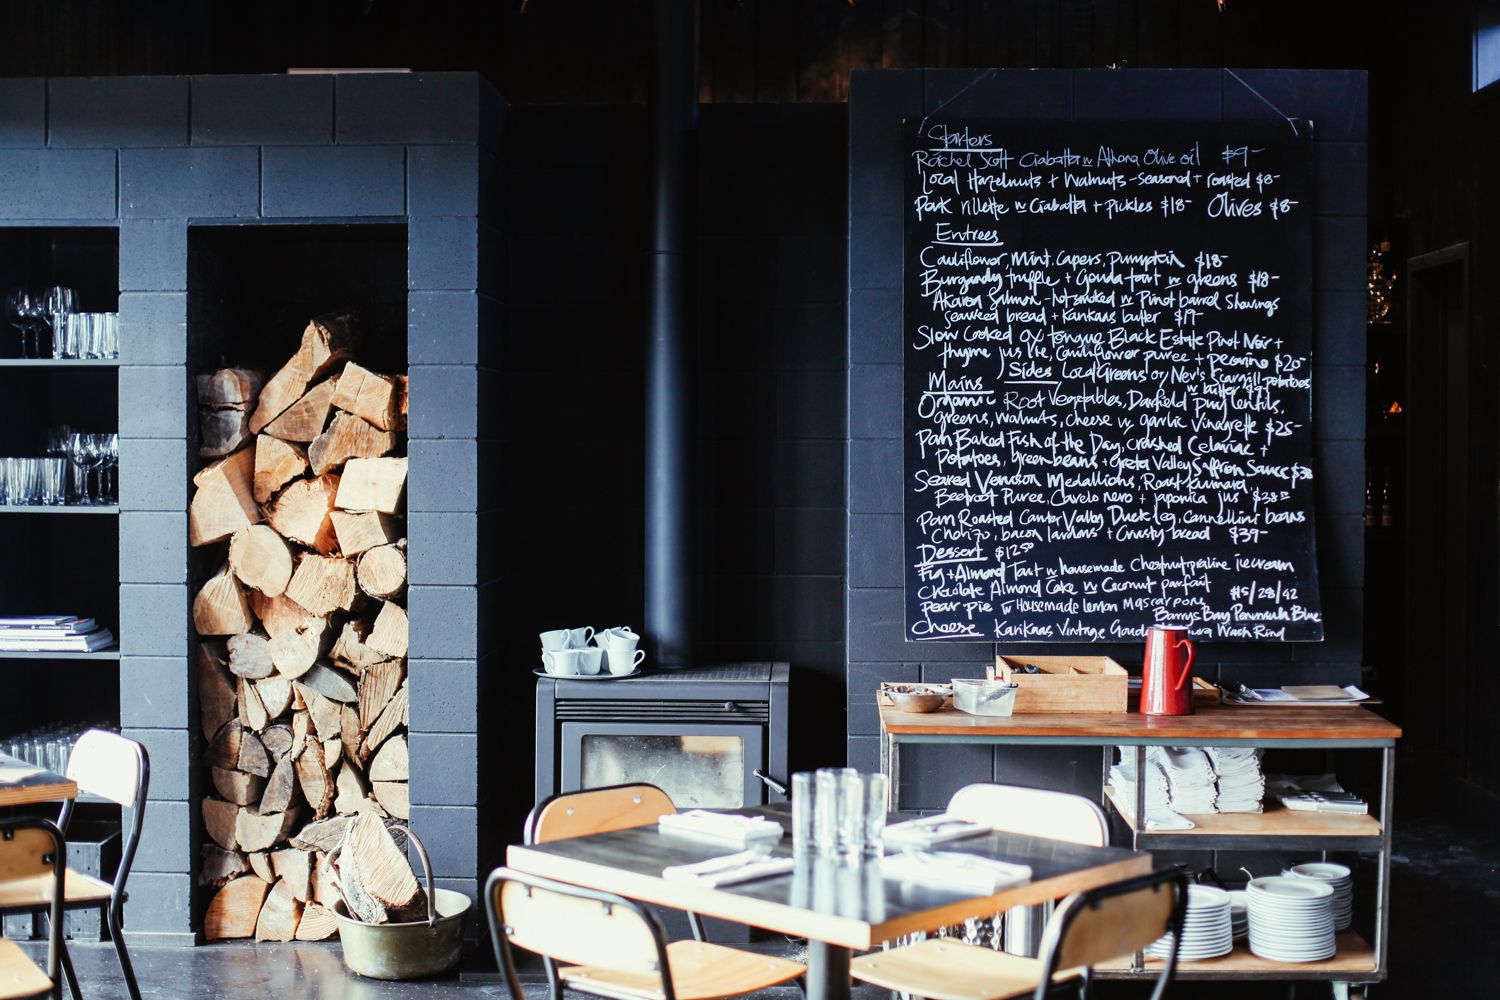 Starters
Rachel Scott Ciabatta w Athena Olive oil $9-
Local Hazelnuts + Walnuts - seasoned + roasted $8-
Pork rillette w Ciabatta + Pickles $18- Olives $8-
Entrees
Cauliflower, Mint, Capers, Pumpkin $18-
Burgandy truffle + Gouda tart w greens $18-
Akaroa Salmon - hot smoked w Pinot barrel Shavings
seaweed bread + Karikaas butter $19-
Slow Cooked Ox tongue Black Estate Pinot Noir +
thyme jus lie, Cauliflower puree + pecorino $20-
Sides Local Greens or Nev's Scargill potatoes
w butter $9-
Mains
Organic Root Vegetables, Darfield Puy lentils,
greens, walnuts, cheese w garlic vinagrette $25-
Pan Baked Fish of the Day, crushed Celeriac +
Potatoes, green beans + Greta Valley Saffron Sauce
Seared Venison Medallions, Roast kumara,
Beetroot Puree, Cavelo nero + japonica jus $38-
Pan Roasted Canter Valley Duck leg, Cannellini beans
Chorizo, bacon lardons + Crusty bread $39-
Dessert $12.50
Fig + Almond Tart w housemade Chestnut praline icecream
Chocolate Almond Cake w Coconut parfait
Pear pie w Housemade lemon Mascarpone
$15/28/42
Barrys Bay Peninsula Blue
Cheese Karikaas Vintage Gouda Wash Rind